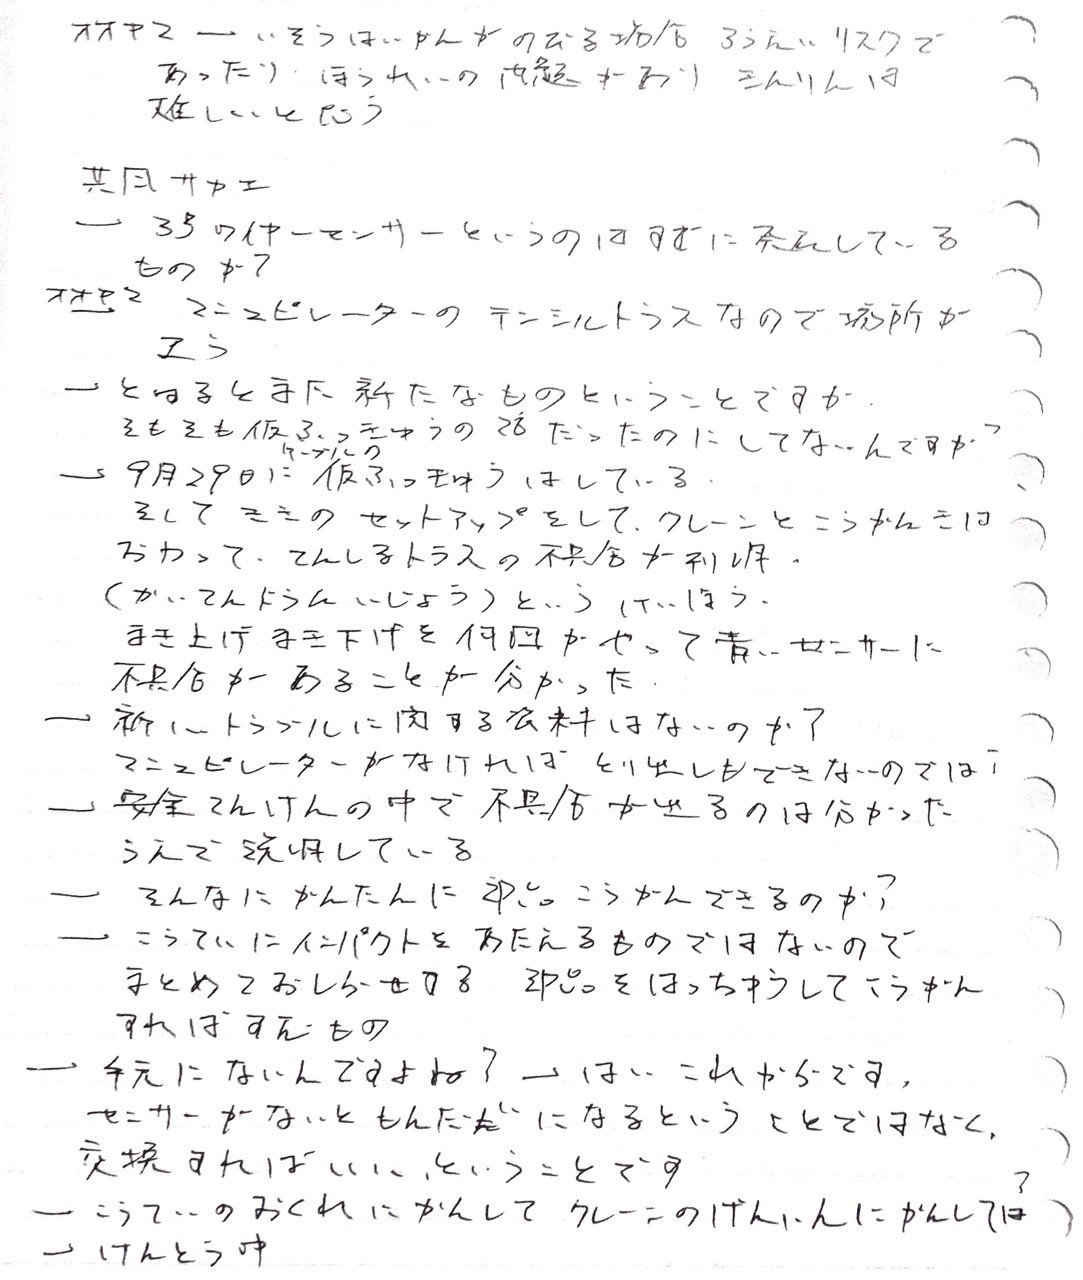 オオヤマ ー いそうはいかんがのびる場合 ろうえいリスクで
あったり ほうれいの問題があり きんりんは
難しいと思う
共同サカエ
ー 3号ワイヤーセンサーというのはすでに発表している
ものか?
オオヤマ マニュピレーターのテンシルトラスなので場所が
エラ
ー となるとまた新たなものということですか.
そもそも仮ふっきゅうの話だったのにしてないんですか?
ケーブルの
ー 9月29日に仮ふっきゅうはしている.
そして ききの セットアップをして、クレーンとこうかんきは
おわって、てんしるトラスの不具合が判明.
(かいてんどうんいじょう)という けいほう.
まき上げまき下げを何回かやって青いセンサーに
不具合があることが分かった.
ー 新しいトラブルに関する資料はないのか?
マニュピレーターがなければ とり出しもできないのでは?
ー 安全てんけんの中で不具合が出るのは分かった
うえで説明している
ー そんなにかんたんに部品こうかんできるのか?
ー こうていにインパクトをあたえるものではないので
まとめておしらせする 部品をはっちゅうしてこうかん
すればすむもの
ー 手元にないんですよね? ー はい これからです,
センサーがないともんだいになるということではなく,
交換すればいい,ということです
ー こうていのおくれにかんして クレーンのげんいんにかんしては?
ー けんとう中